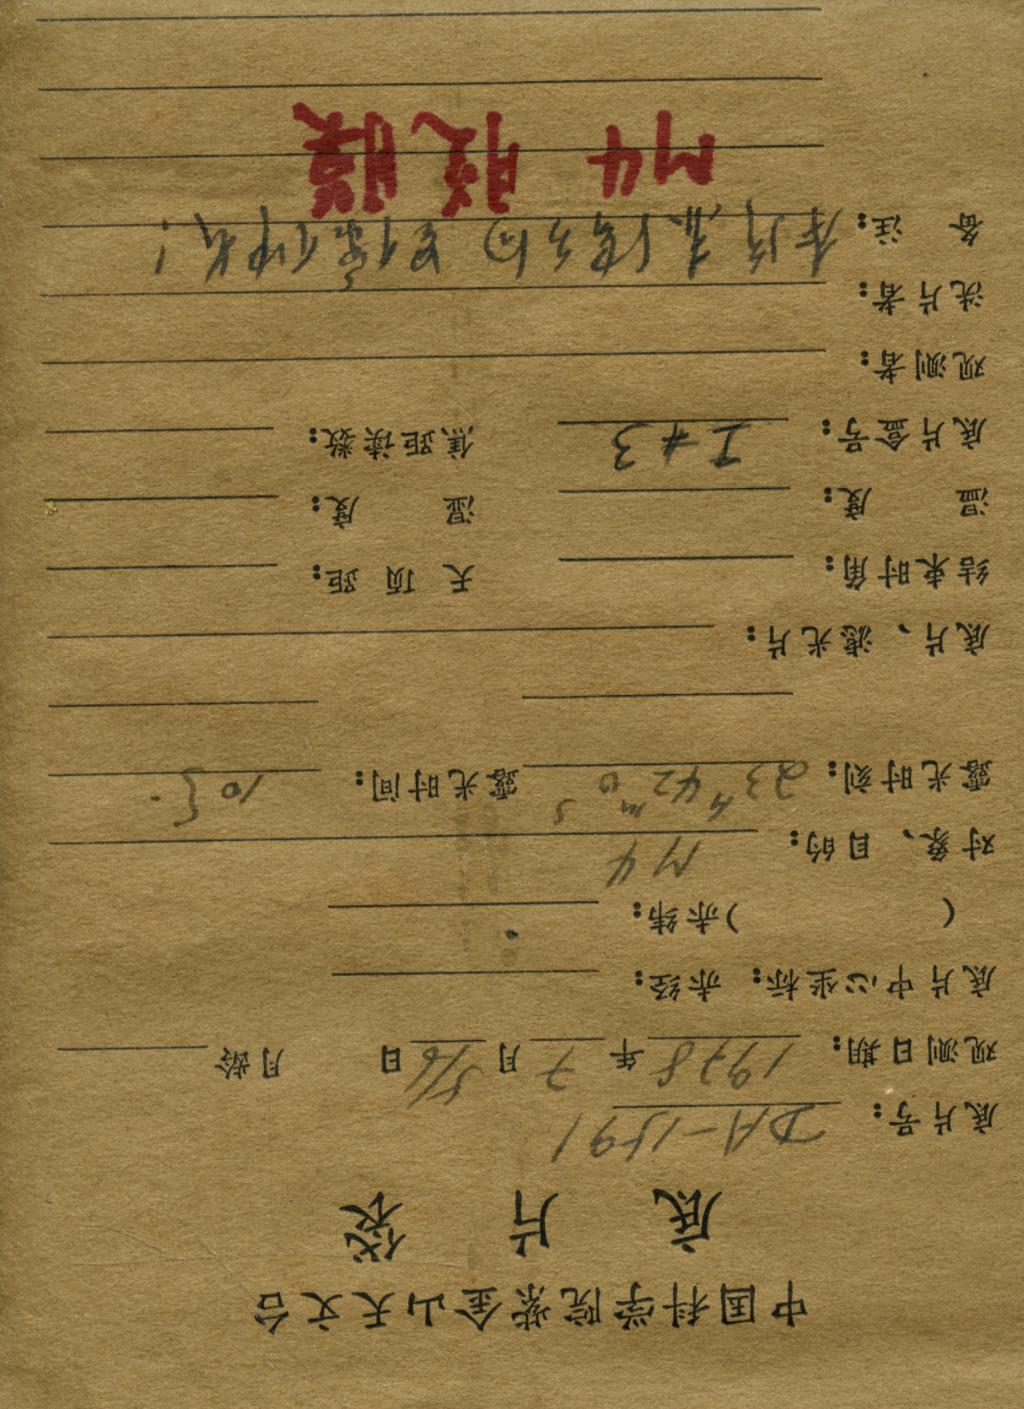 中国科学院紫金山天文台
底片袋
底片号: DA-1591
观测日期: 1978年7月5/6日 月龄
底片中心坐标: 赤经:
( )赤纬:
对象、目的: M4
露光时刻: 23h42m0s 露光时间: 10s.
底片、滤光片:
结束时角: 天顶距:
温度: 湿度:
底片盒号: I#3 焦距读数:
观测者:
洗片者:
备注: 本片
M4 胶膜